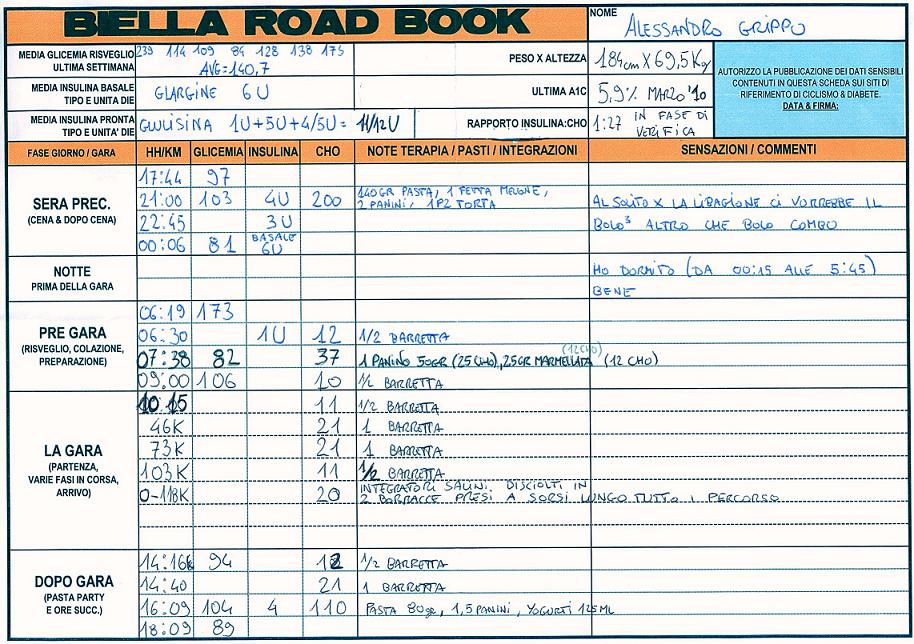 BIELLA ROAD BOOK
NOME
ALESSANDRO GRIPPO
MEDIA GLICEMIA RISVEGLIO ULTIMA SETTIMANA
239 114 109 84 128 138 173
AVG=140,7
PESO X ALTEZZA
184cm X 69,5Kg
AUTORIZZO LA PUBBLICAZIONE DEI DATI SENSIBILI
CONTENUTI IN QUESTA SCHEDA SUI SITI DI
RIFERIMENTO DI CICLISMO & DIABETE.
DATA & FIRMA:
MEDIA INSULINA BASALE
TIPO E UNITA DIE
GLARGINE 6U
ULTIMA A1C
5,9% MARZO '10
MEDIA INSULINA PRONTA
TIPO E UNITA' DIE
GLULISINA 1U+5U+4/5U= 11/12U
RAPPORTO INSULINA:CHO
1:27 IN FASE DI VERIFICA
FASE GIORNO / GARA HH/KM GLICEMIA INSULINA CHO NOTE TERAPIA / PASTI / INTEGRAZIONI SENSAZIONI / COMMENTI
SERA PREC.
(CENA & DOPO CENA)
17:44 97
21:00 103 4U 200 140GR PASTA, 1 FETTA MELONE, 2 PANINI, 1PZ TORTA
22:45 3U
00:06 81 BASALE 6U
AL SOLITO X LA LIBAGIONE CI VORREBBE IL
BOLO³ ALTRO CHE BOLO COMBO
NOTTE
PRIMA DELLA GARA
HO DORMITO (DA 00:15 ALLE 5:45)
BENE
PRE GARA
(RISVEGLIO, COLAZIONE,
PREPARAZIONE)
06:19 173
06:30 1U 12 1/2 BARRETTA
07:38 82 37 1 PANINO 50GR (25 CHO), 25GR MARMELLATA (12 CHO)
(12CHO)
09:00 106 10 1/2 BARRETTA
LA GARA
(PARTENZA,
VARIE FASI IN CORSA,
ARRIVO)
10 15 11 1/2 BARRETTA
46K 21 1 BARRETTA
73K 21 1 BARRETTA
103K 11 1/2 BARRETTA
0-118K 20 INTEGRATORI SALINI DISCIOLTI IN
2 BORRACCE PRESI A SORSI LUNGO TUTTO I PERCORSO
DOPO GARA
(PASTA PARTY
E ORE SUCC.)
14:16 94 12 1/2 BARRETTA
14:40 21 1 BARRETTA
16:09 104 4 110 PASTA 80gr, 1,5 PANINI, YOGURT 125ML
18:09 89